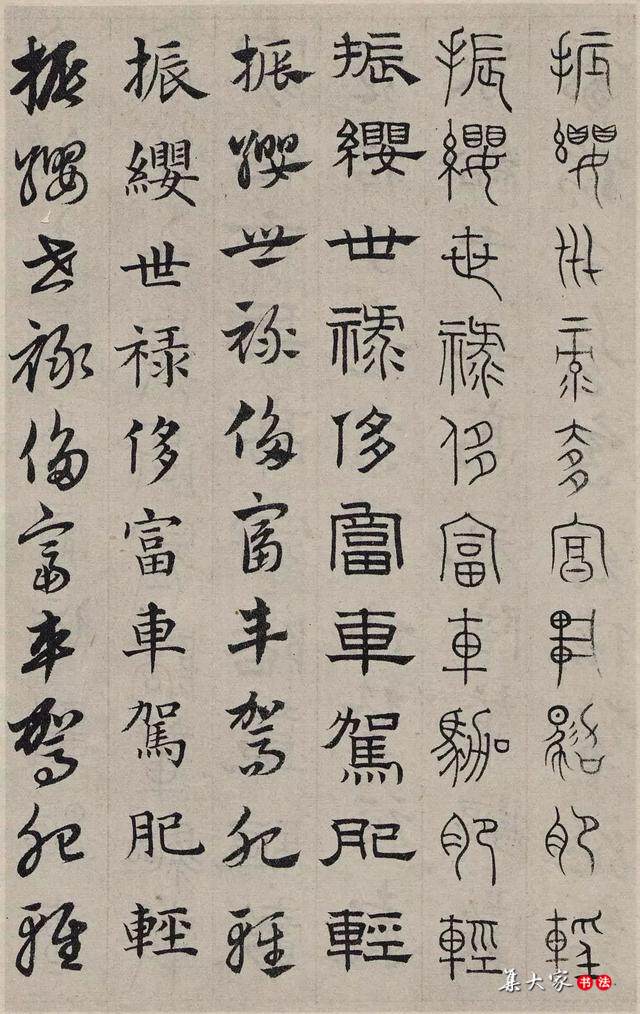 振纓世祿侈富車駕肥輕
振纓世祿侈富車駕肥輕
振纓世祿侈富車駕肥輕
振纓世祿侈富車駕肥輕
振纓世祿侈富車駕肥輕
振纓世祿侈富車駕肥輕
集大家书法